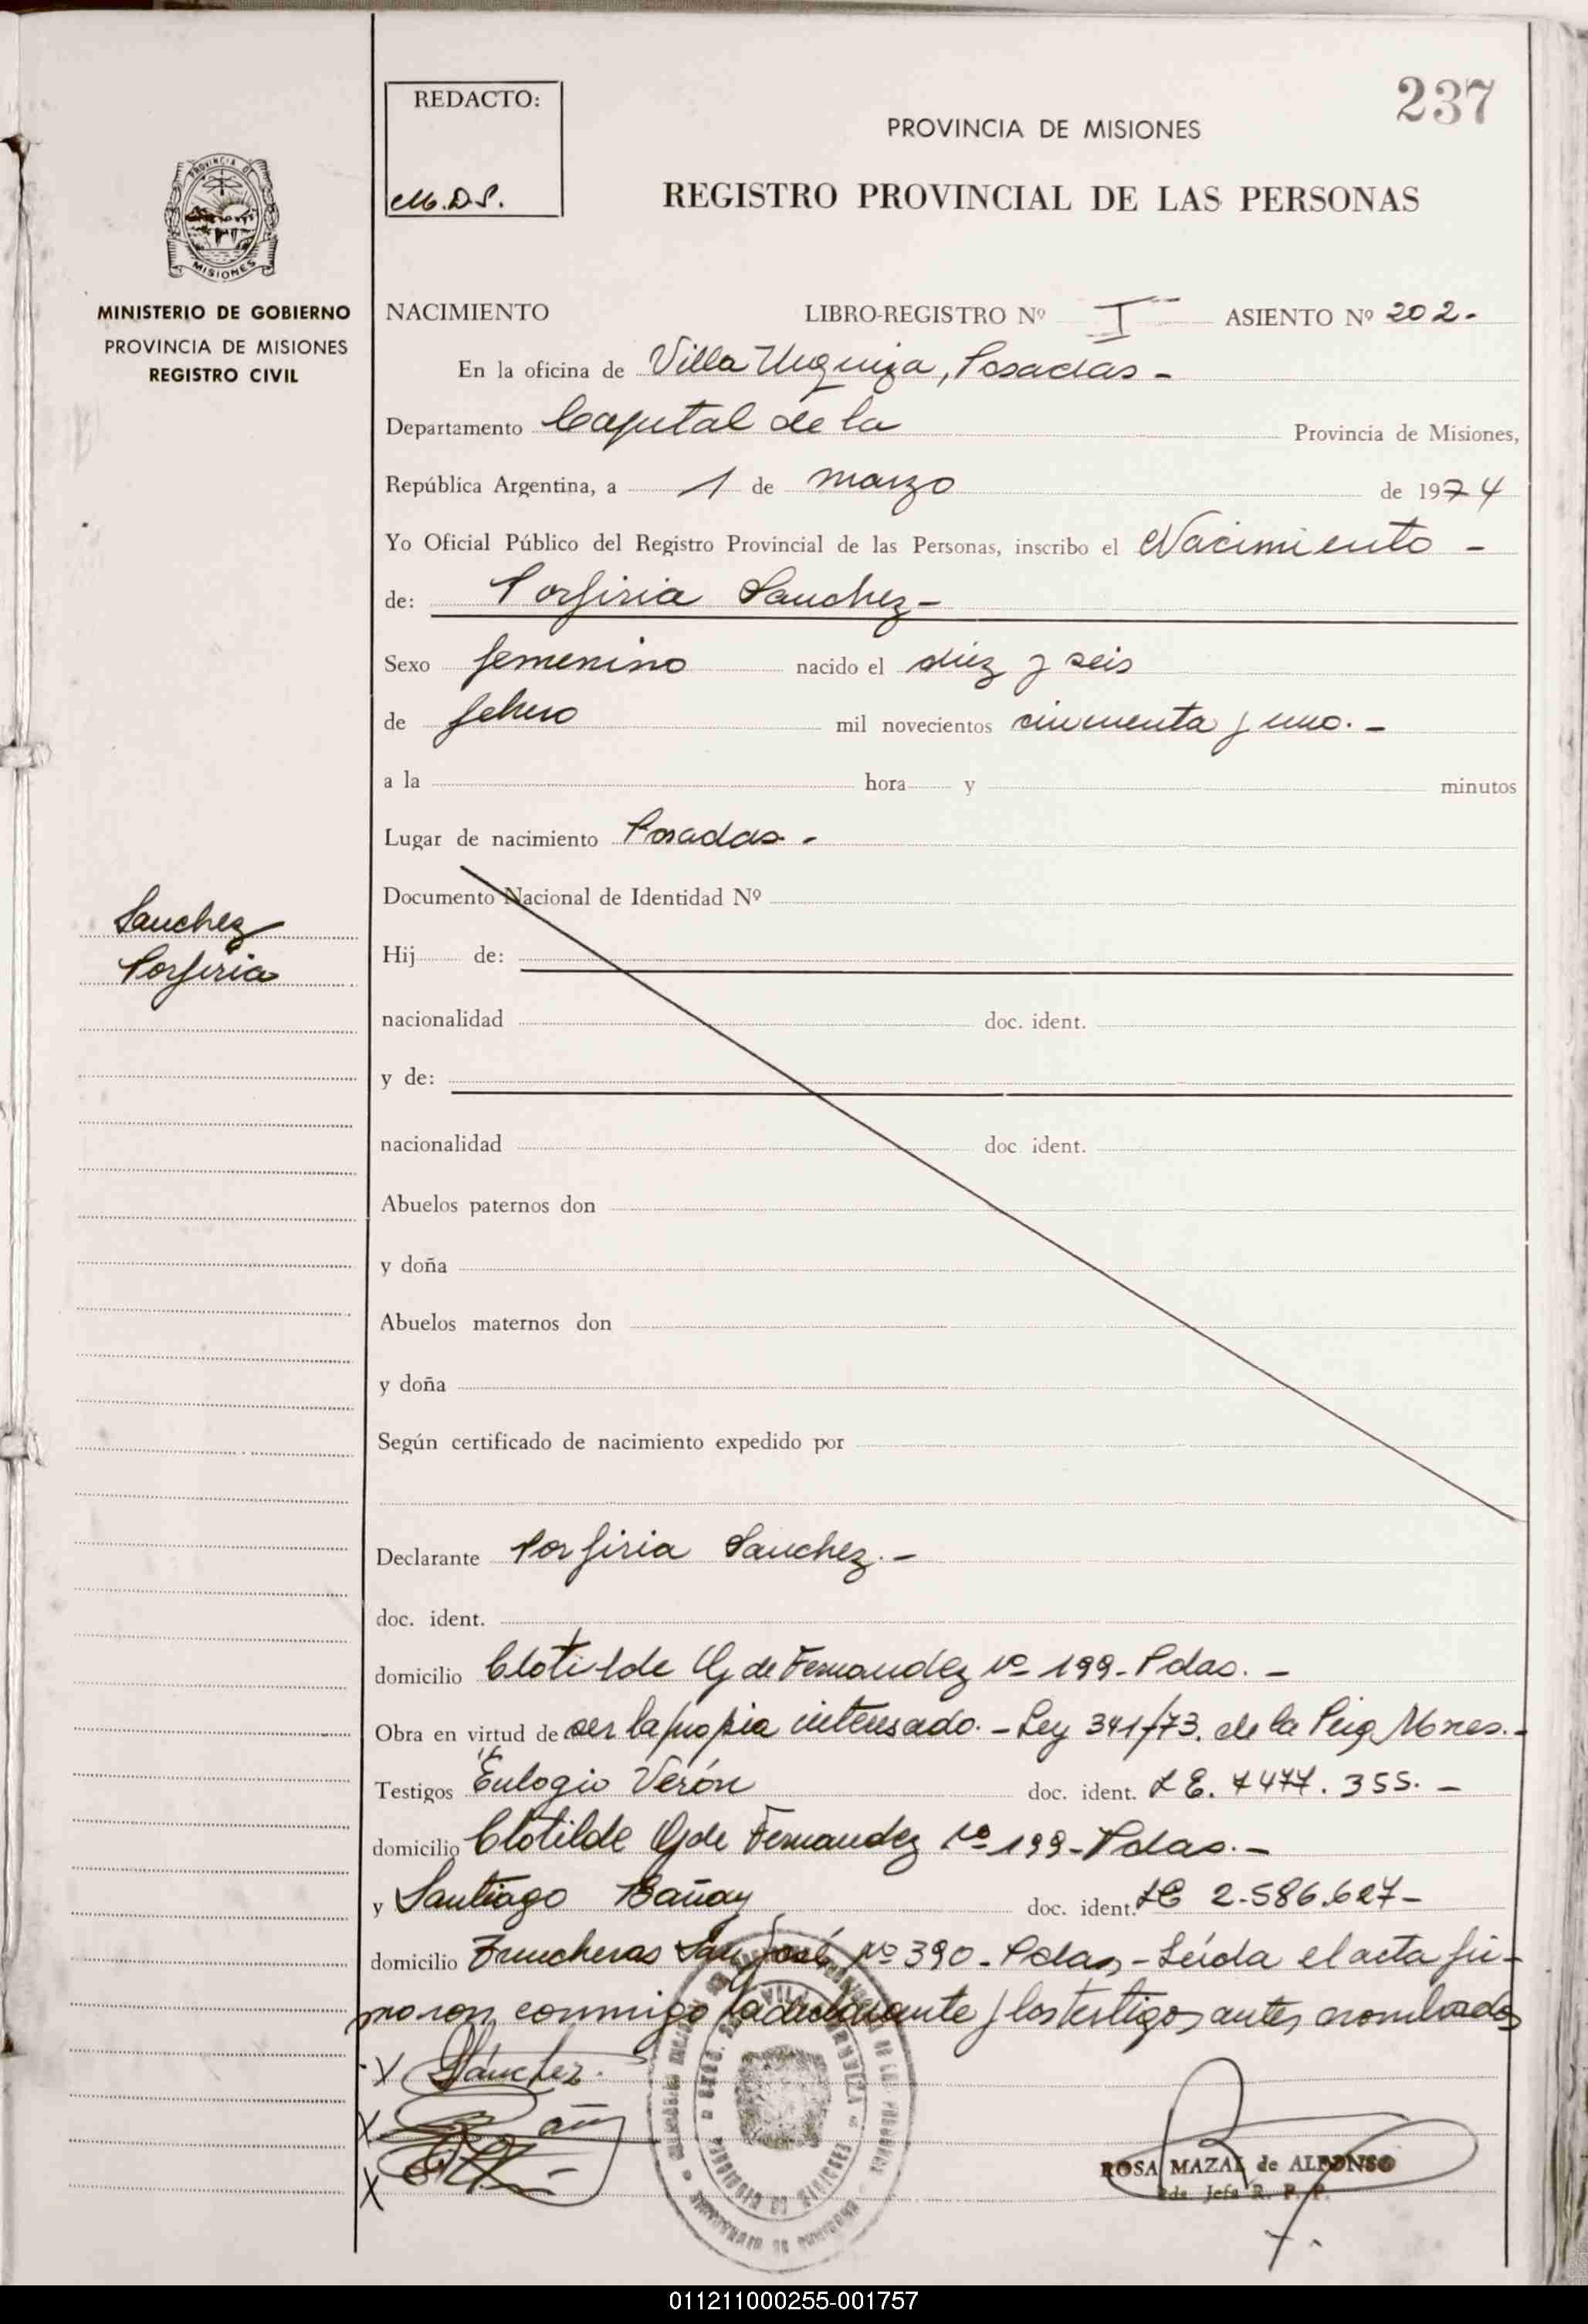 237
REDACTO:
M.D.S.
PROVINCIA DE MISIONES
REGISTRO PROVINCIAL DE LAS PERSONAS
PROVINCIA DE
MISIONES
MINISTERIO DE GOBIERNO
PROVINCIA DE MISIONES
REGISTRO CIVIL
NACIMIENTO LIBRO-REGISTRO Nº I ASIENTO Nº 202.
En la oficina de Villa Urquiza, Posadas -
Departamento Capital de la Provincia de Misiones,
República Argentina, a 1 de marzo de 1974
Yo Oficial Público del Registro Provincial de las Personas, inscribo el Nacimiento -
de: Porfiria Sanchez -
Sexo femenino nacido el diez y seis
de febrero mil novecientos cincuenta y uno. -
a la hora y minutos
Lugar de nacimiento Posadas -
Documento Nacional de Identidad Nº
Sanchez
Porfiria
Hij de:
nacionalidad doc. ident.
y de:
nacionalidad doc. ident.
Abuelos paternos don
y doña
Abuelos maternos don
y doña
Según certificado de nacimiento expedido por
Declarante Porfiria Sanchez. -
doc. ident.
domicilio Clotilde G de Fernandez Nº 199 - Pdas. -
Obra en virtud de ser la propia interesado. - Ley 341/73. de la Mnes. -
Testigos Eulogio Verón doc. ident. L E. 7477.355. -
domicilio Clotilde G de Fernandez Nº 199 - Pdas. -
y Santiago Bañay doc. ident. LE 2.586.627 -
domicilio Trincheras San José Nº 390 - Pdas, - Leída el acta fir-
maron conmigo la declarante y los testigos antes nombrados
X Sánchez.
X
X
ROSA MAZAL de ALFONSO
2da. Jefa R. P. P.
011211000255-001757